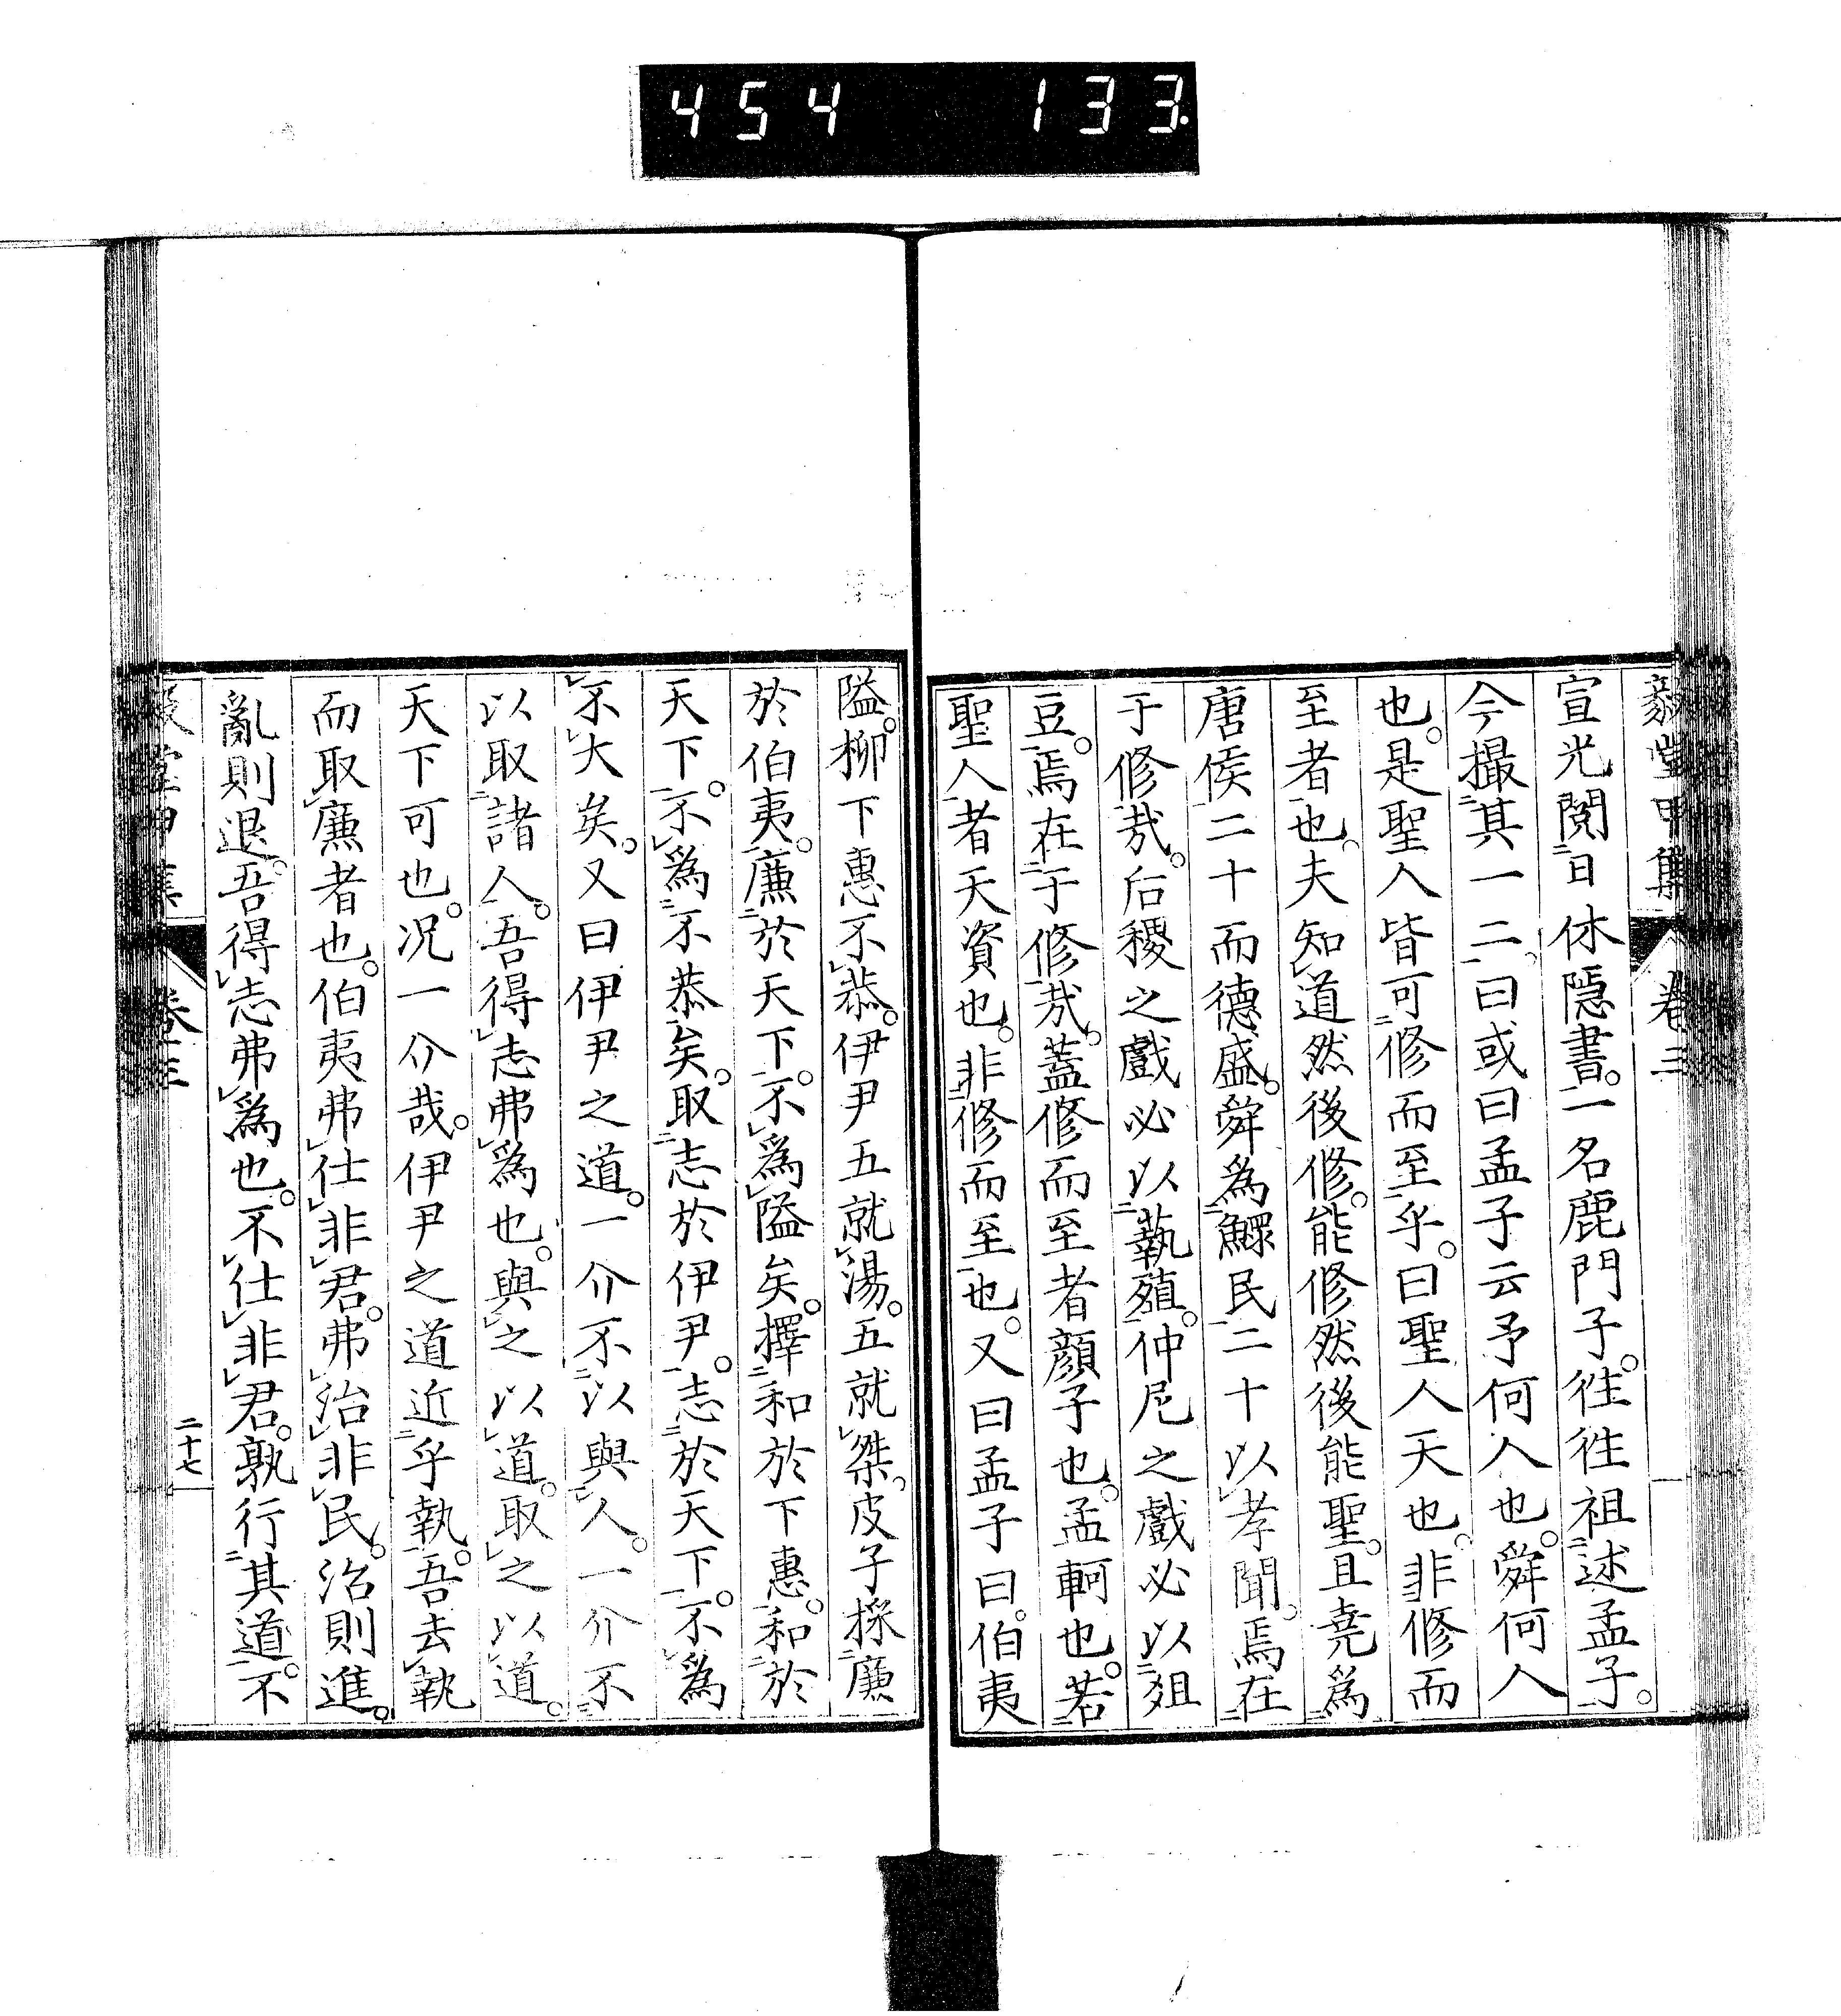 454 133.
毅堂甲集 卷三
宣光閱日休隱書。一名鹿門子。徃徃祖述孟子。
今撮其一二。曰或曰孟子云予何人也。舜何人
也。是聖人皆可修而至乎。曰聖人天也。非修而
至者也。夫知道然後修。能修然後能聖。且堯爲
唐侯二十而德盛。舜爲鰥民二十以孝聞。焉在
于修哉。后稷之戲必以蓺殖。仲尼之戲必以俎
豆。焉在于修哉。蓋修而至者顏子也。孟軻也。若
聖人者天資也。非修而至也。又曰孟子曰。伯夷
隘。柳下惠不恭。伊尹五就湯。五就桀。皮子採廉
於伯夷。廉於天下。不爲隘矣。擇和於下惠。和於
天下。不爲不恭矣。取志於伊尹。志於天下。不爲
不大矣。又曰伊尹之道。一介不以與人。一介不
以取諸人。吾得志弗爲也。與之以道。取之以道。
天下可也。况一介哉。伊尹之道近乎執。吾去執
而取廉者也。伯夷弗仕非君。弗治非民。治則進。
亂則退。吾得志弗爲也。不仕非君。孰行其道。不
毅堂甲集 卷三 二十七